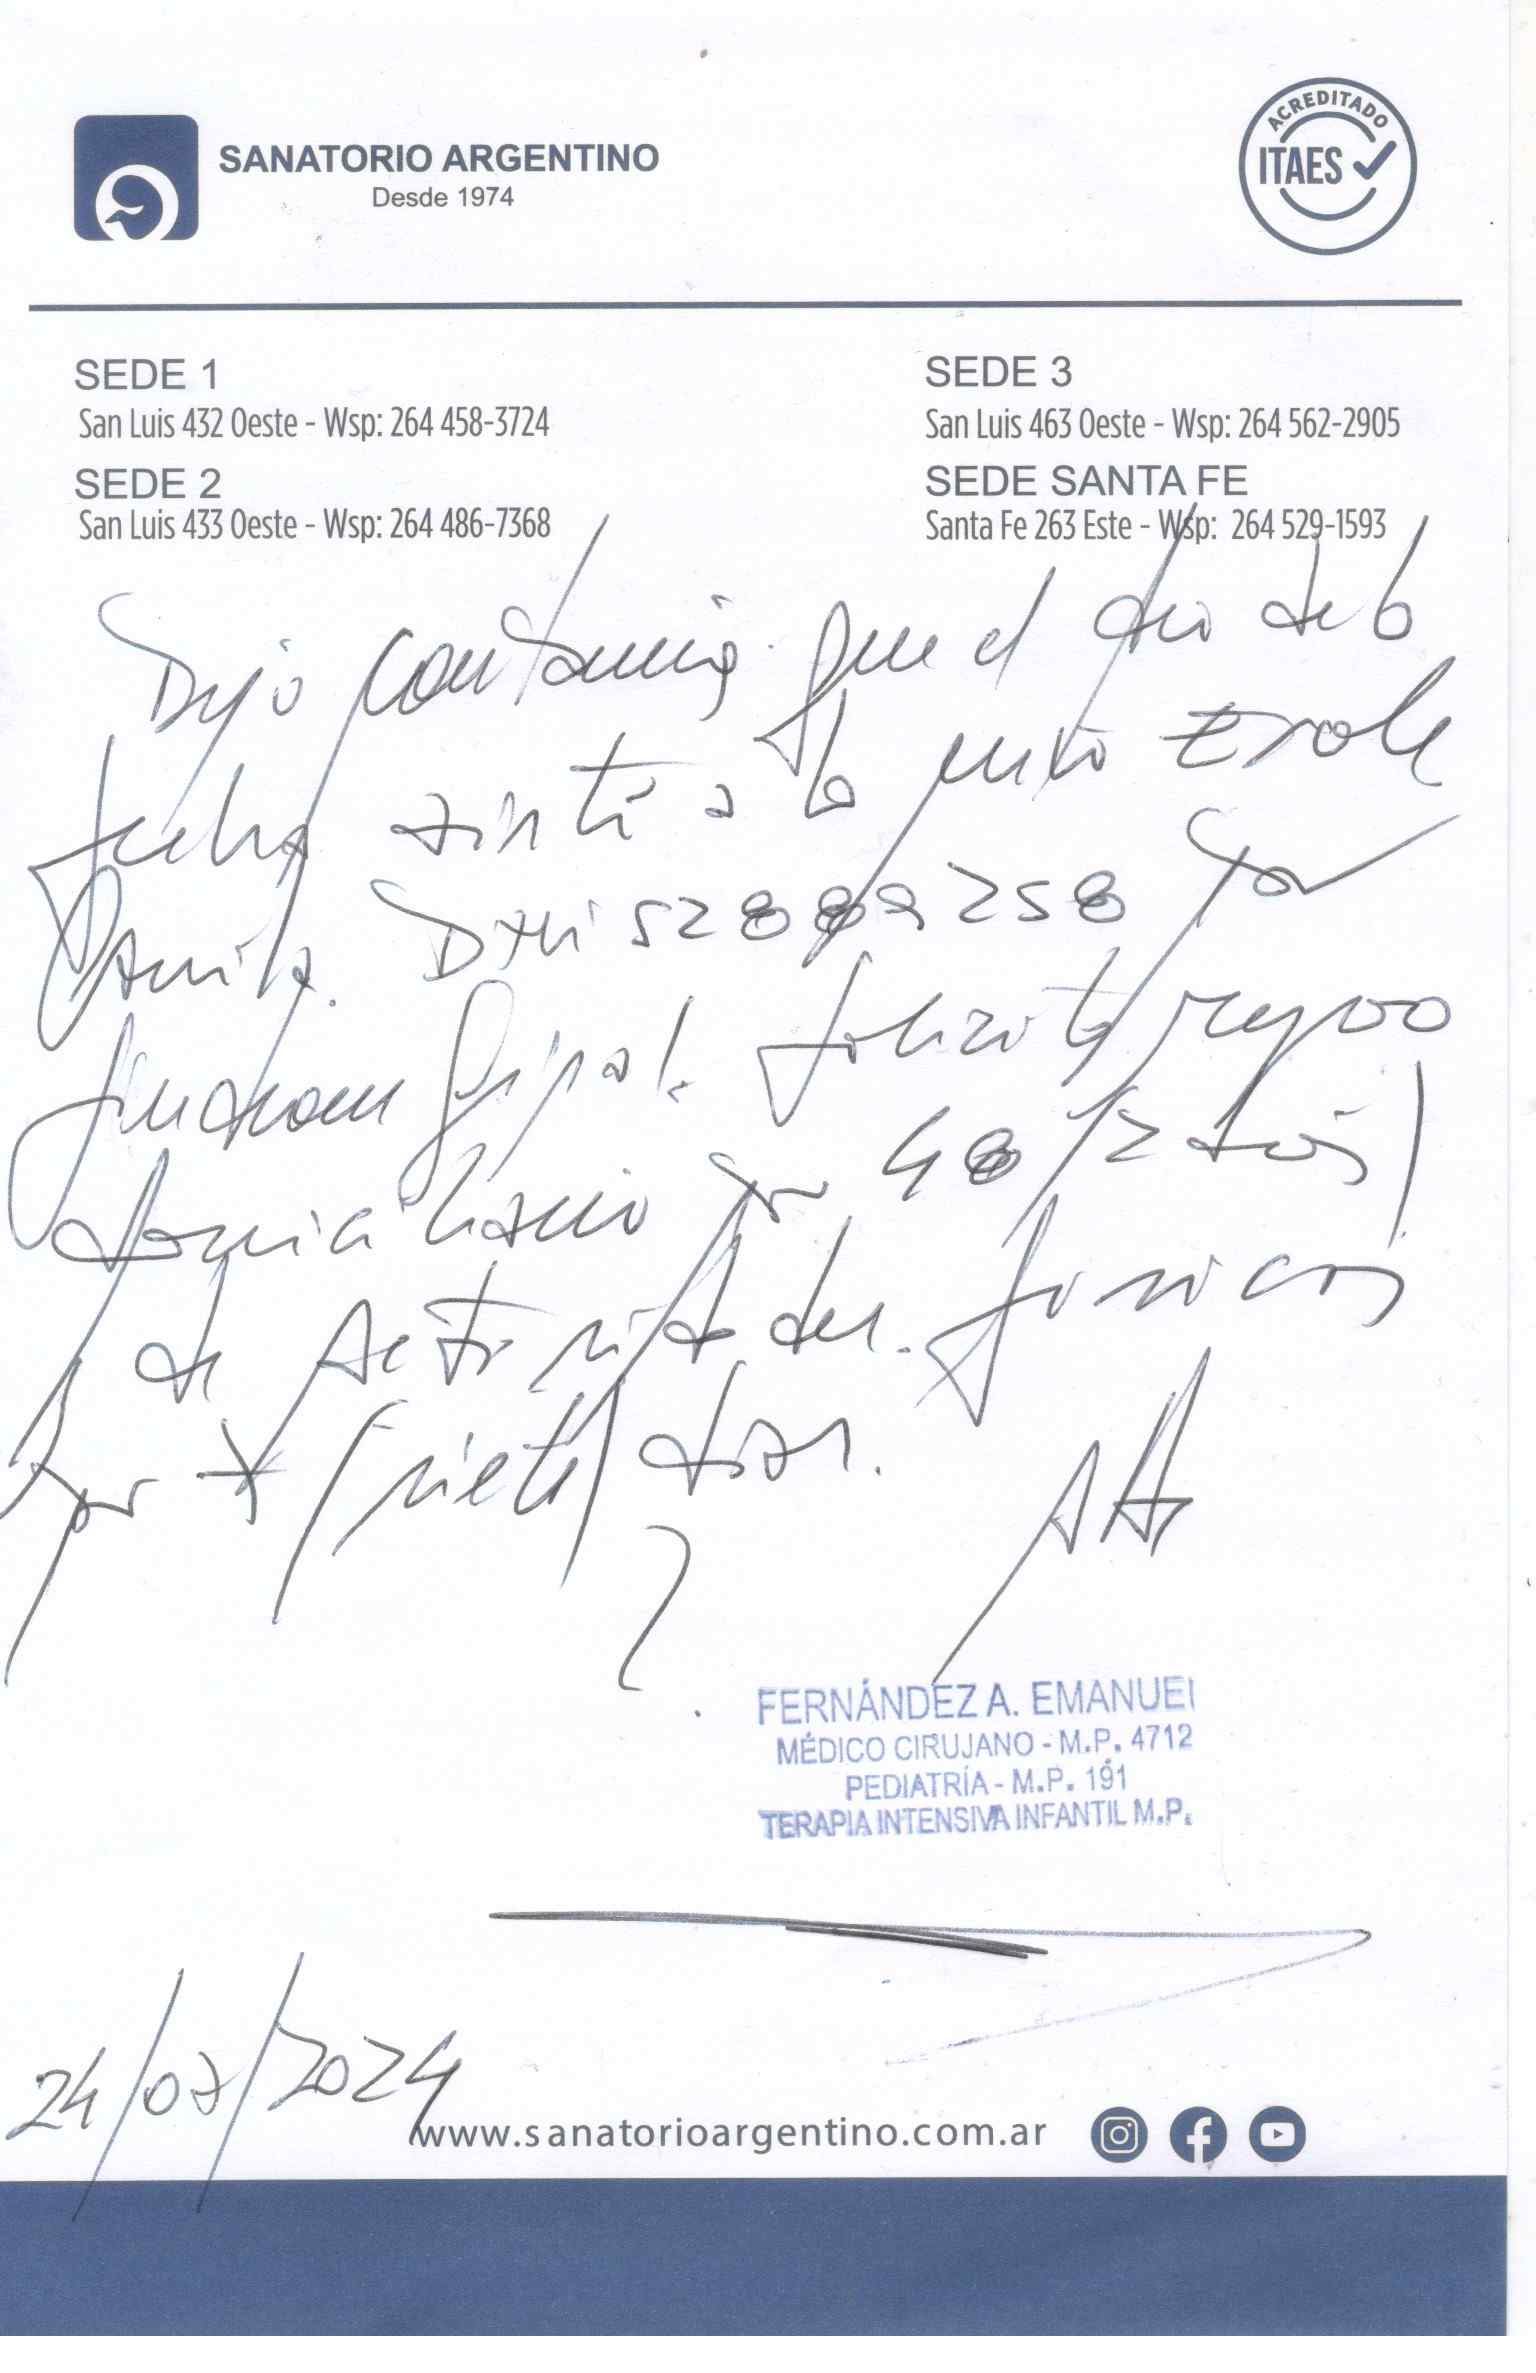 ACREDITADO
ITAES
SANATORIO ARGENTINO
Desde 1974
SEDE 1
San Luis 432 Oeste - Wsp: 264 458-3724
SEDE 2
San Luis 433 Oeste - Wsp: 264 486-7368
SEDE 3
San Luis 463 Oeste - Wsp: 264 562-2905
SEDE SANTA FE
Santa Fe 263 Este - Wsp: 264 529-1593
Dejo constancia que el dia de la
fecha asisti a la
DNI 52889258 por
sindrome gripal. solicito reposo
domiciliario por 48/72 dias
de actividades fisicas
por 7 (siete) dias.
FERNÁNDEZ A. EMANUEL
MÉDICO CIRUJANO - M.P. 4712
PEDIATRÍA - M.P. 191
TERAPIA INTENSIVA INFANTIL M.P.
24/07/2024
www.sanatorioargentino.com.ar